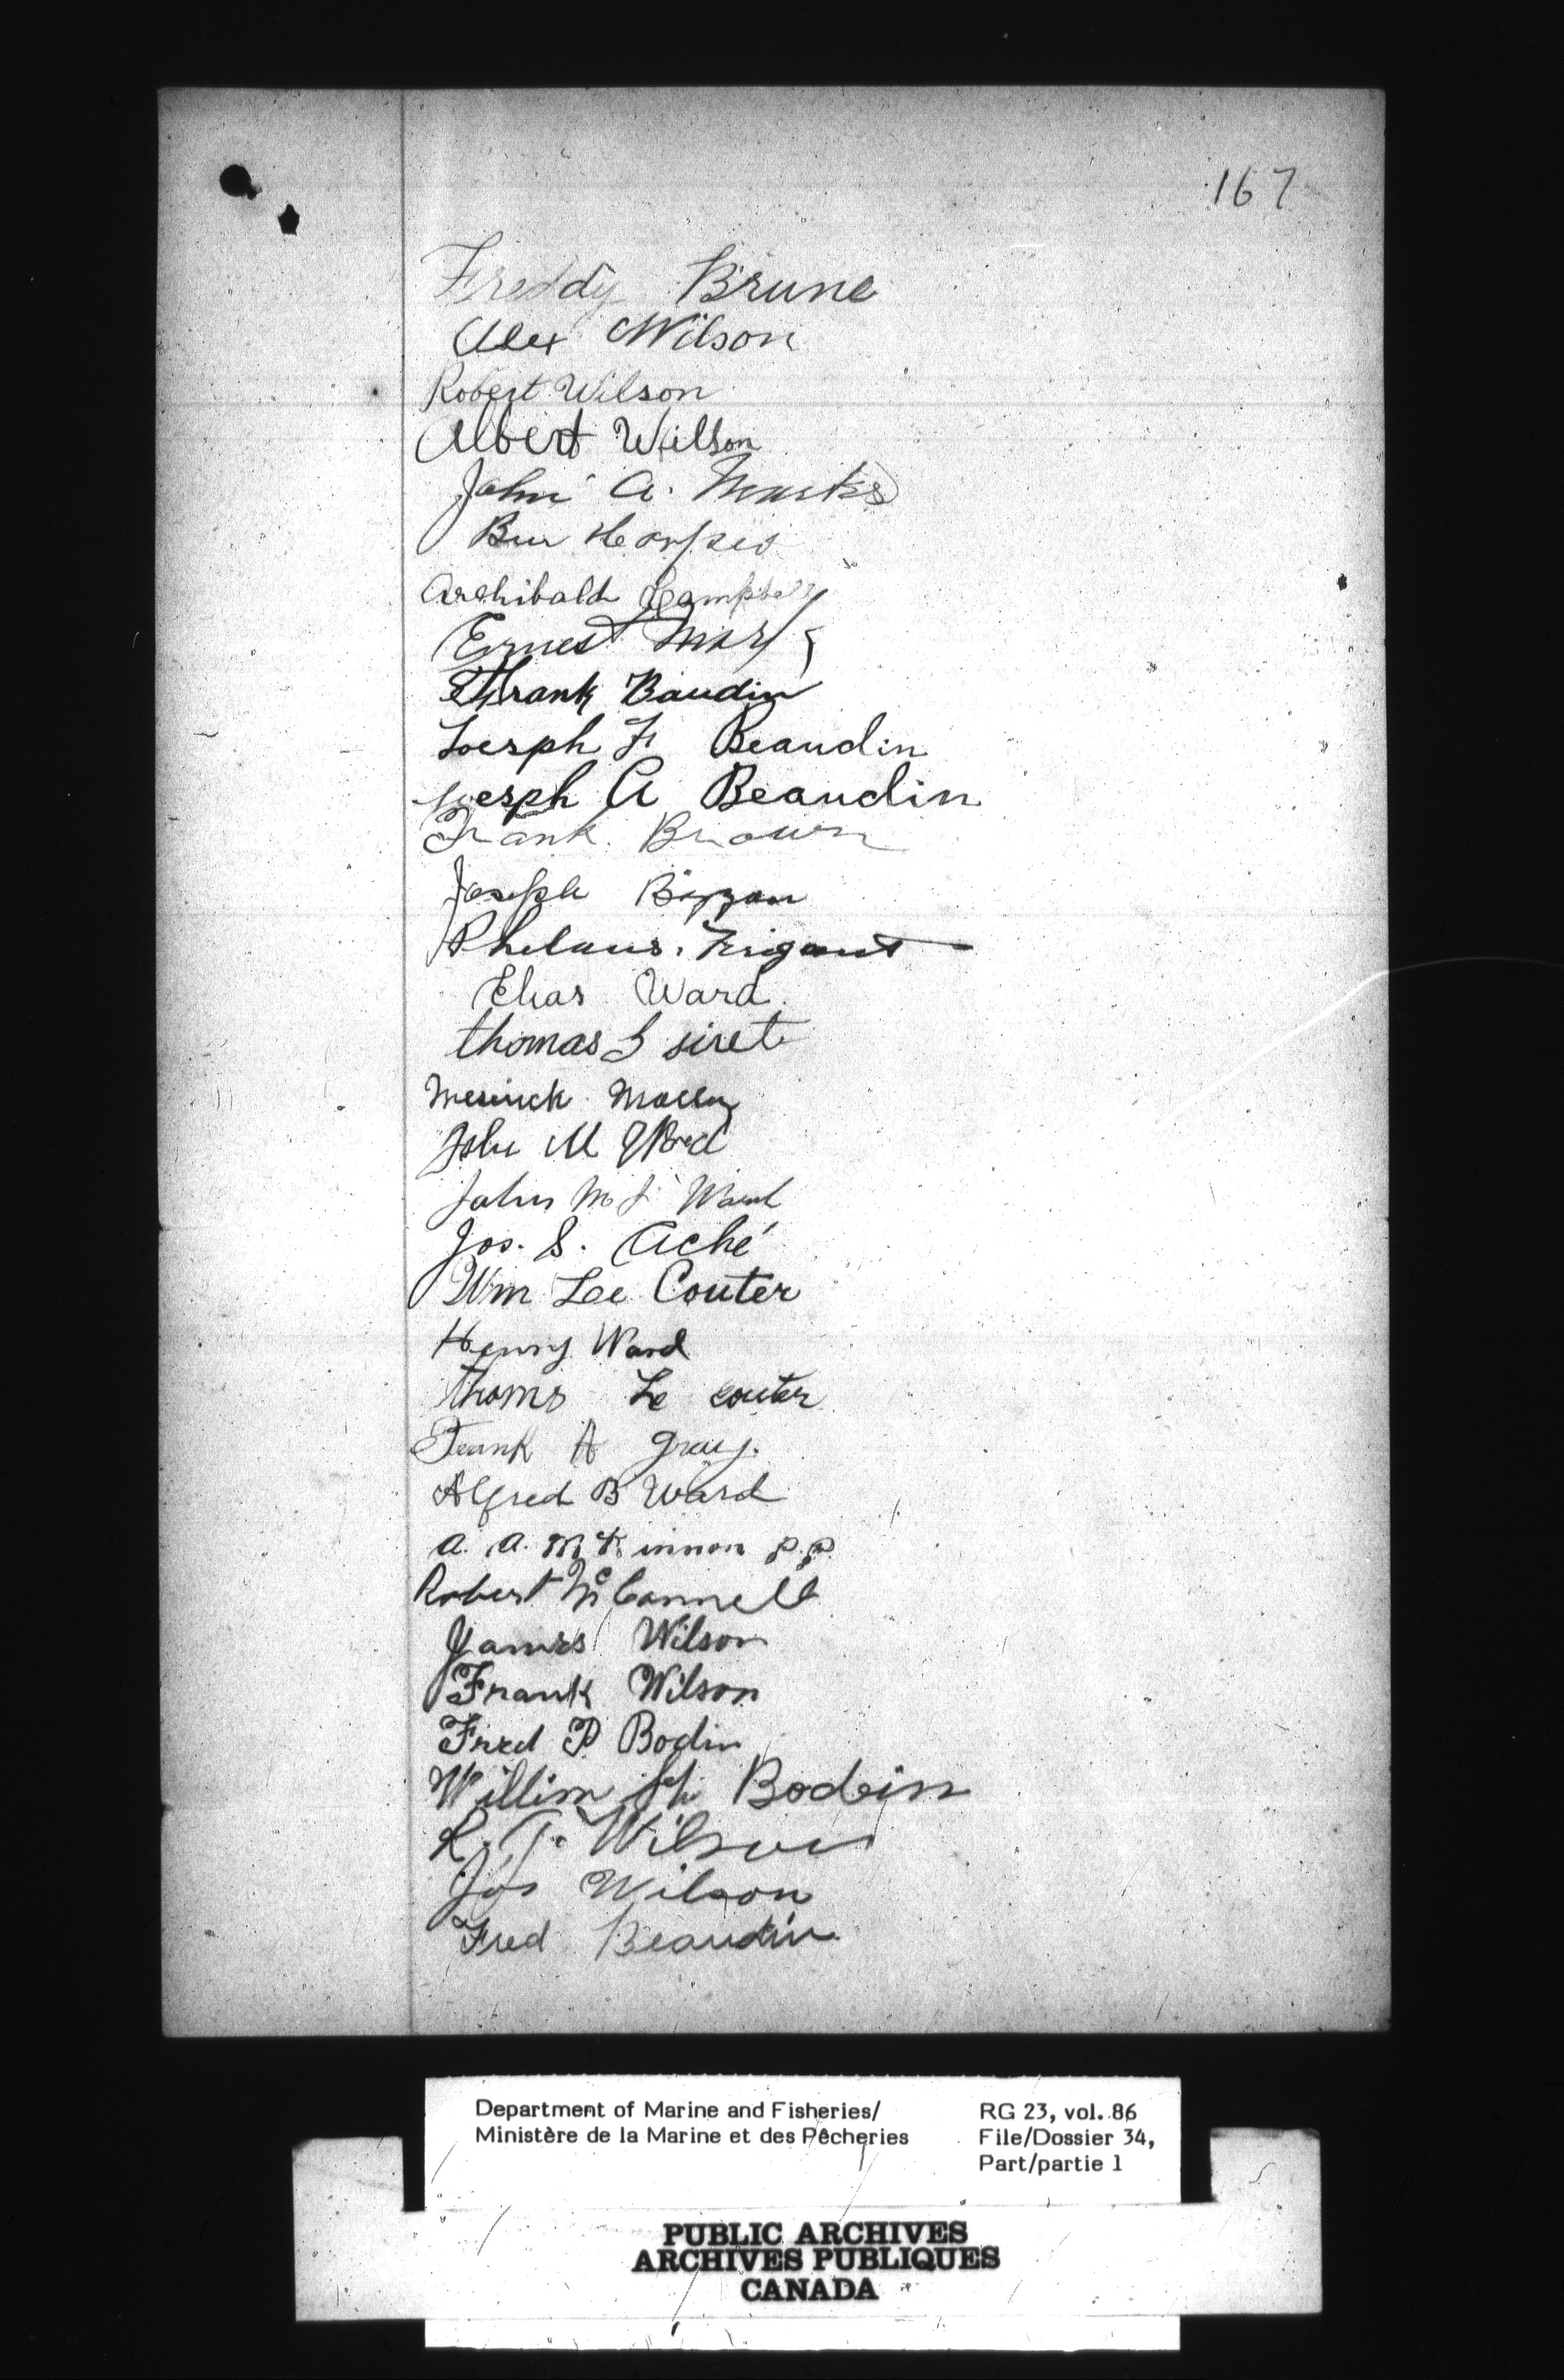 167
Freddy Brune
Alex Wilson
Robert Wilson
Albert Willson
John A. Marks
Ben
Archibald Campbell
Ernest
Frank Baudin
Joesph F Beaudin
Joesph A Beaudin
Frank Brown
Joseph
Elias Ward
thomas S siret
John M Ward
John M J Ward
Jos. S. Aché
Wm Le Couter
Henry Ward
thoms Le couter
Frank A Gray.
Alfred B Ward
A. A. McKinnon P.P.
Robert McConnell
James Wilson
Frank Wilson
Fred P Bodin
Willim Bodein
R. T. Wilson
Jos Wilson
Fred Beaudin
Department of Marine and Fisheries/ RG 23, vol. 86
Ministère de la Marine et des Pêcheries File/Dossier 34,
Part/partie 1
PUBLIC ARCHIVES
ARCHIVES PUBLIQUES
CANADA